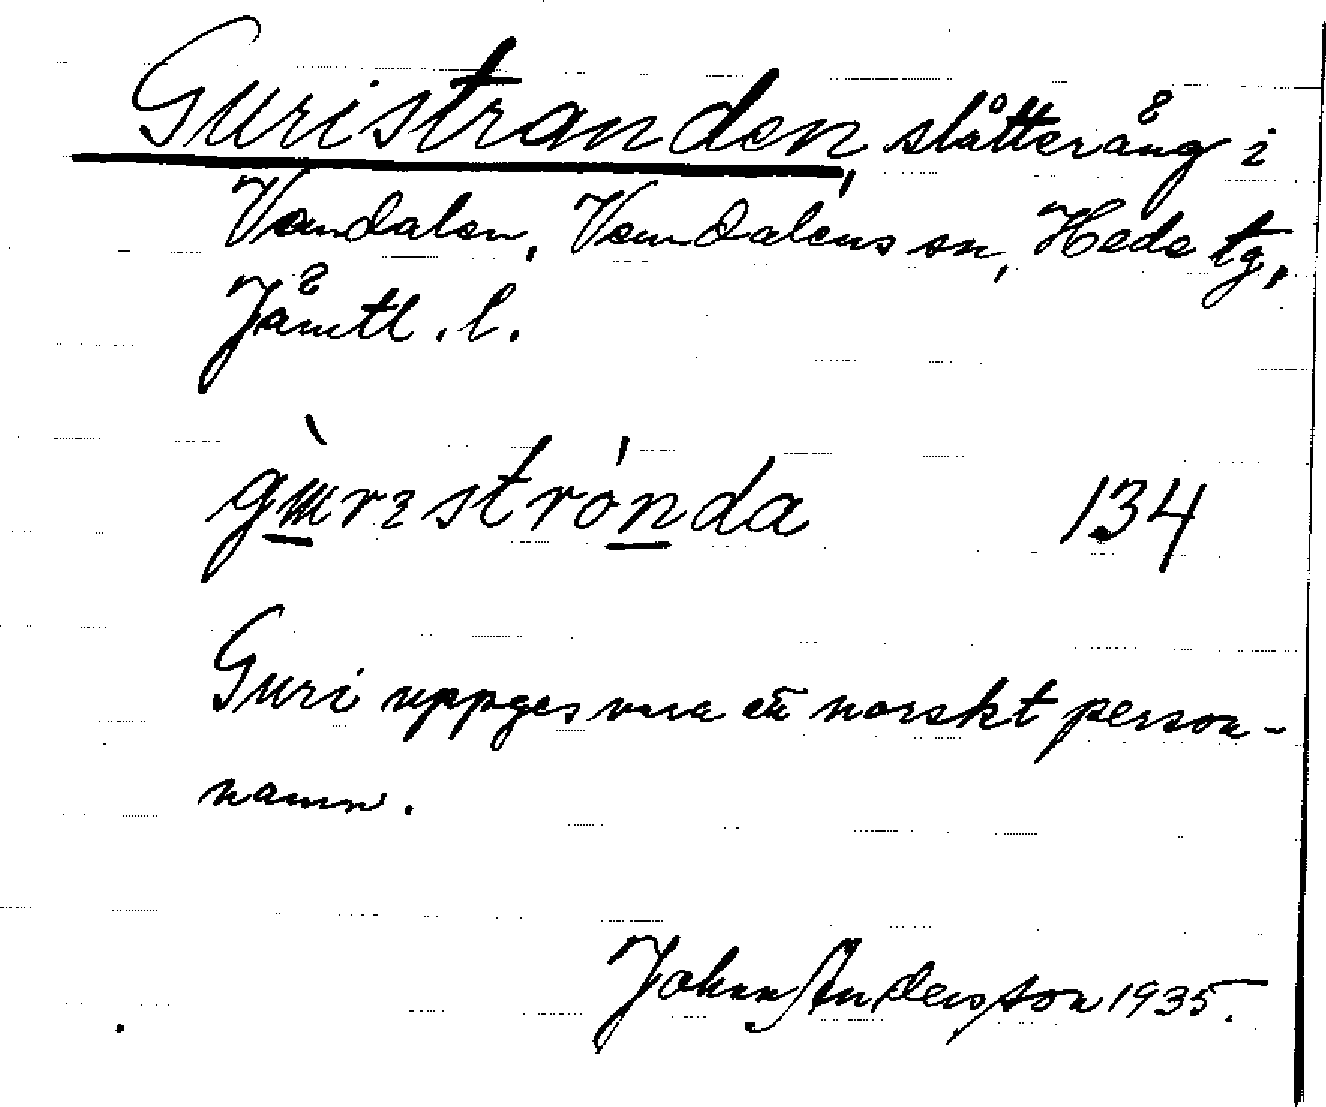 Guristranden, slåtteräng i
Vemdalen, Vemdalens sn, Hede tg,
Jämtl. l.
gùrɩstrónda 134
Guri uppges vara ett norskt person-
namn.
John Andersson 1935.